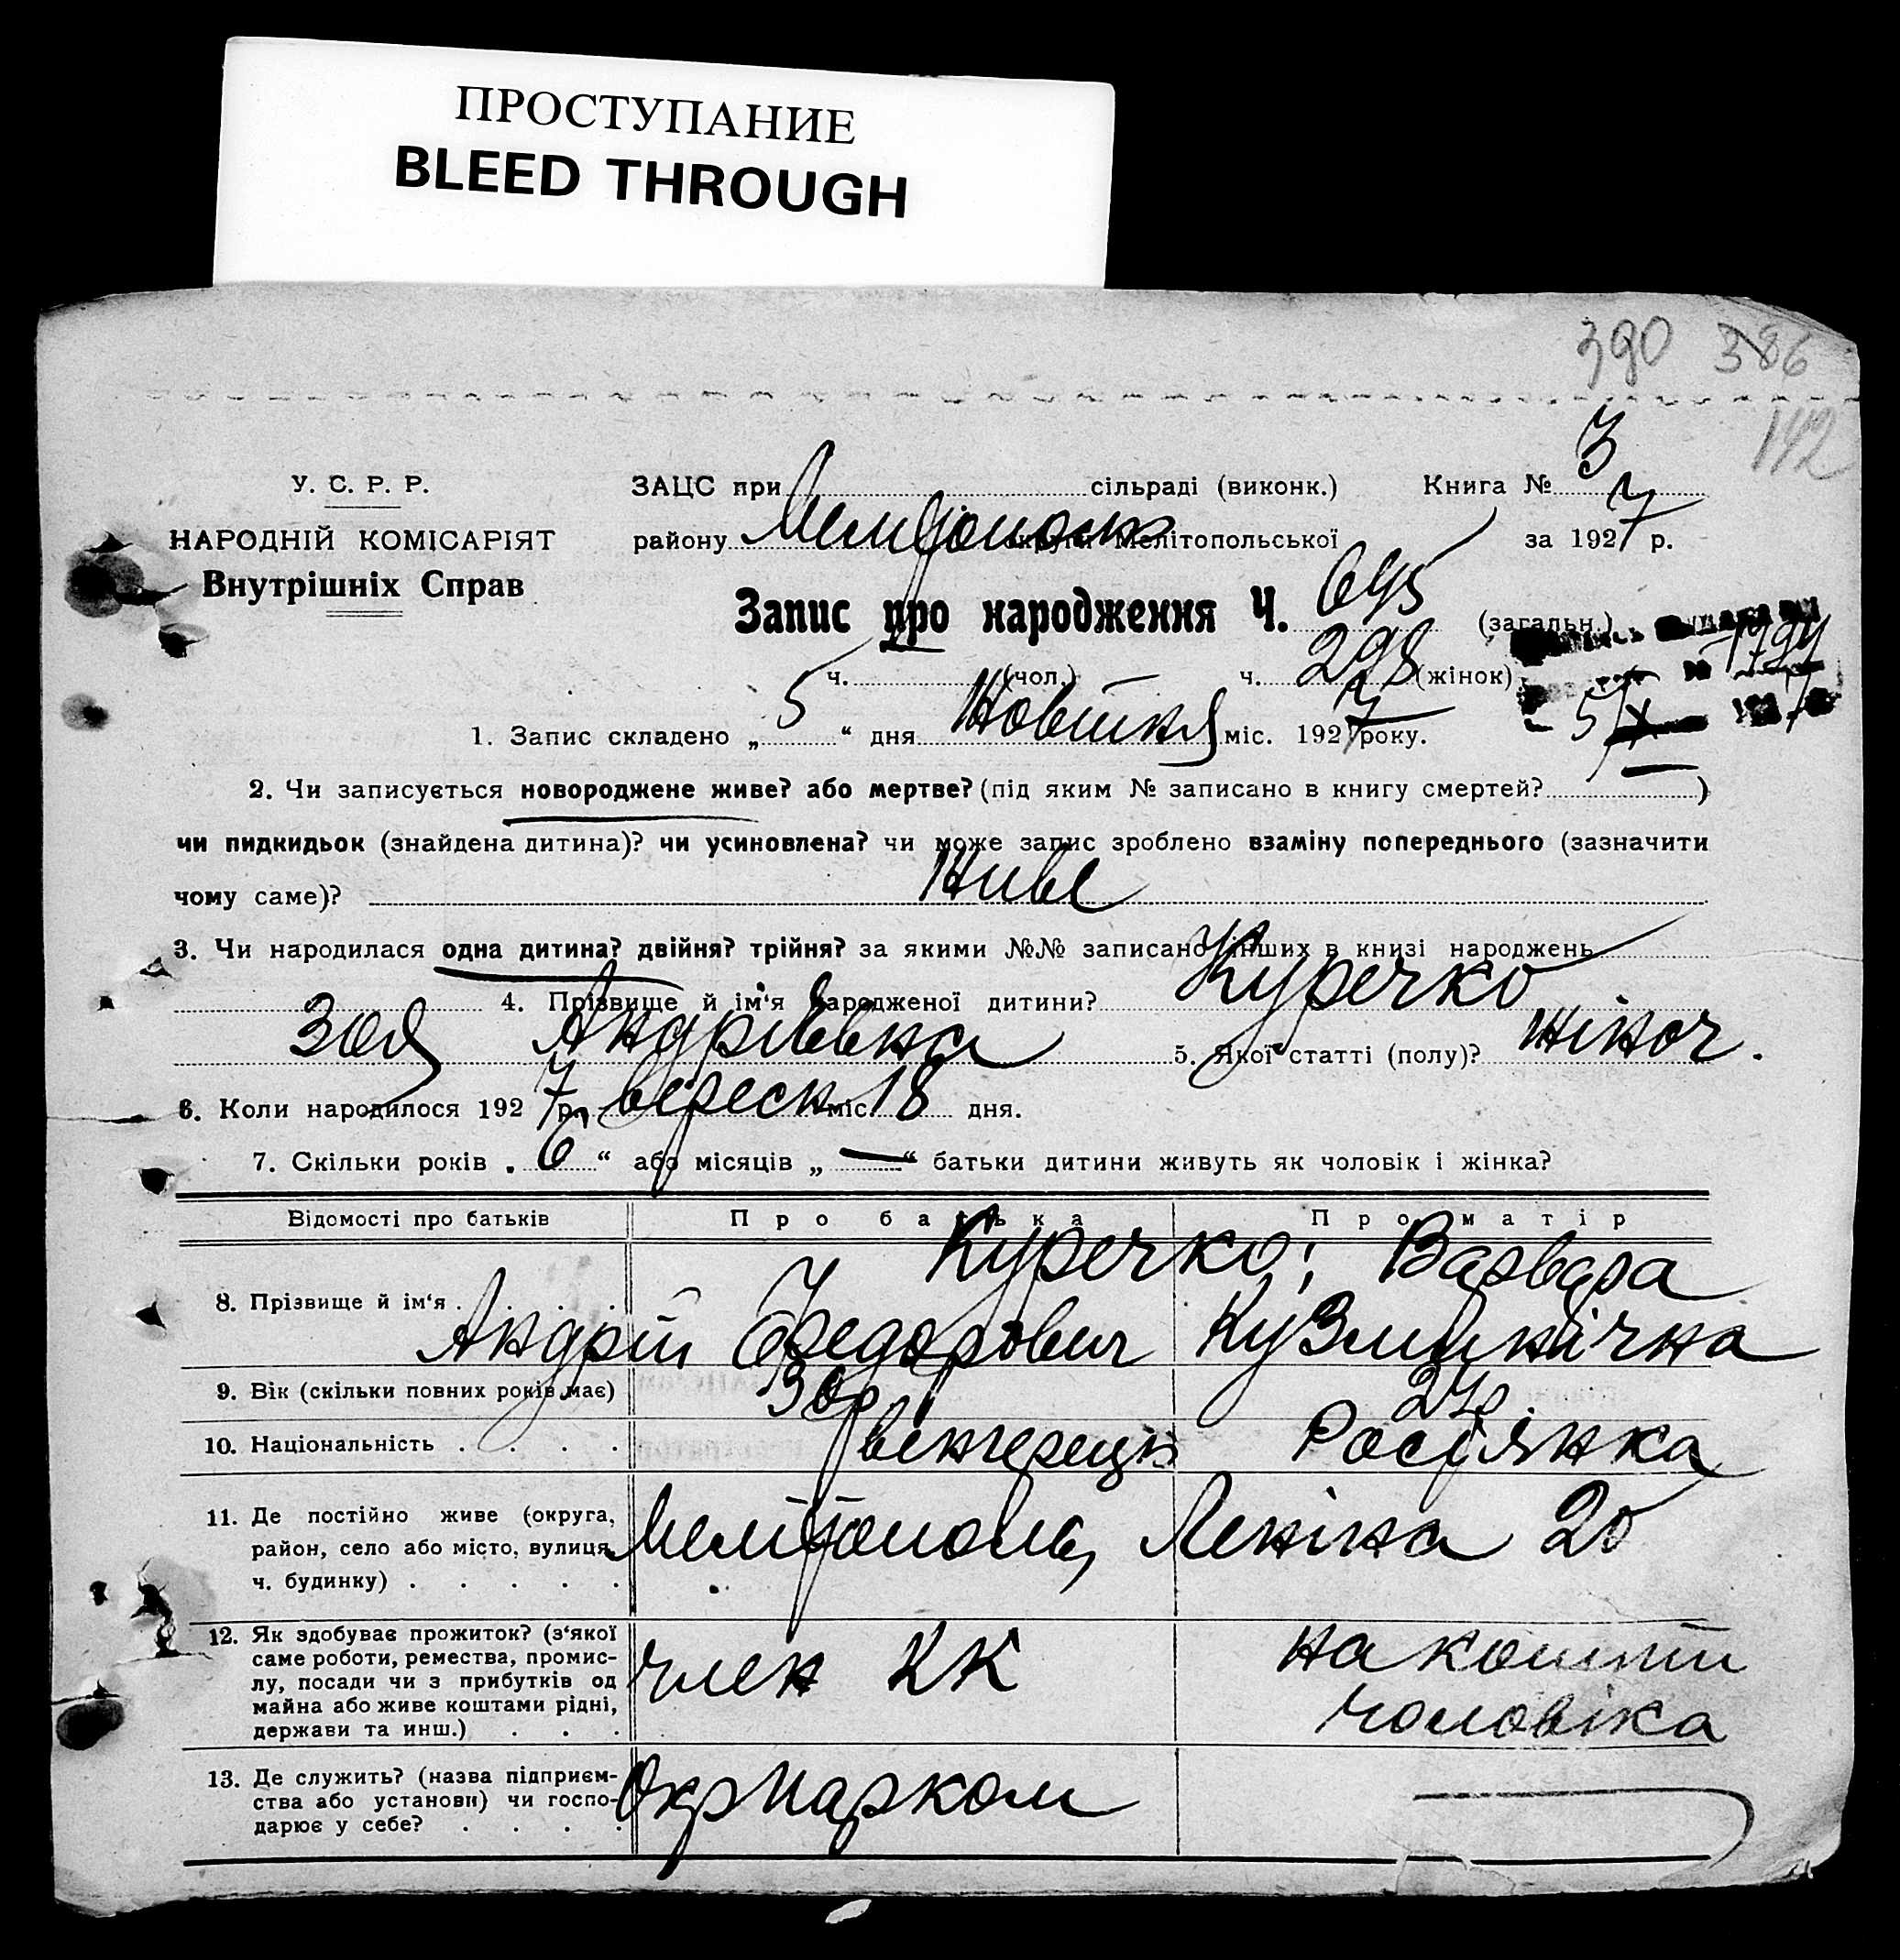 ПРОСТУПАНИЕ
BLEED THROUGH
390 386
142
У. С. Р. Р.
НАРОДНІЙ КОМІСАРІЯТ
Внутрішніх Справ
ЗАЦС при сільраді (виконк.) Книга № 3
району Мелітопольск округи Мелітопольської за 1927 р.
Запис про народження Ч. 695 (загальн.)
ч. (чол.) ч. 298 (жінок)
1794
5/X
1. Запис складено „ 5 “ дня Жовтня міс. 1927 року.
2. Чи записується новороджене живе? або мертве? (під яким № записано в книгу смертей? — )
чи пидкидьок (знайдена дитина)? чи усиновлена? чи може запис зроблено взаміну попереднього (зазначити
чому саме)? Живе
3. Чи народилася одна дитина? двійня? трійня? за якими №№ записано інших в книзі народжень
4. Прізвище й ім‘я народженої дитини? Куречко
Зоя Андріївна 5. Якої статті (полу)? жіноч.
6. Коли народилося 1927 р. вереск міс. 18 дня.
7. Скільки років „ 6 “ або місяців „ — “ батьки дитини живуть як чоловік і жінка?
Відомості про батьків Про батька Про матір
8. Прізвище й ім‘я . . . . Куречко; Варвара
Андрій Федорович Кузьминічна
9. Вік (скільки повних років має) 30р 27р.
10. Національність . . . . венгерець Росіянка
11. Де постійно живе (округа,
район, село або місто, вулиця, Мелітополь, Леніна 20
ч. будинку) . . . . .
12. Як здобуває прожиток? (з‘якої
саме роботи, ремества, промис-
лу, посади чи з прибутків од
майна або живе коштами рідні,
держави та инш.) . . .
член КК на кошти
чоловіка
13. Де служить? (назва підприєм-
ства або установи) чи госпо-
дарює у себе? . . . .
Окрпарком